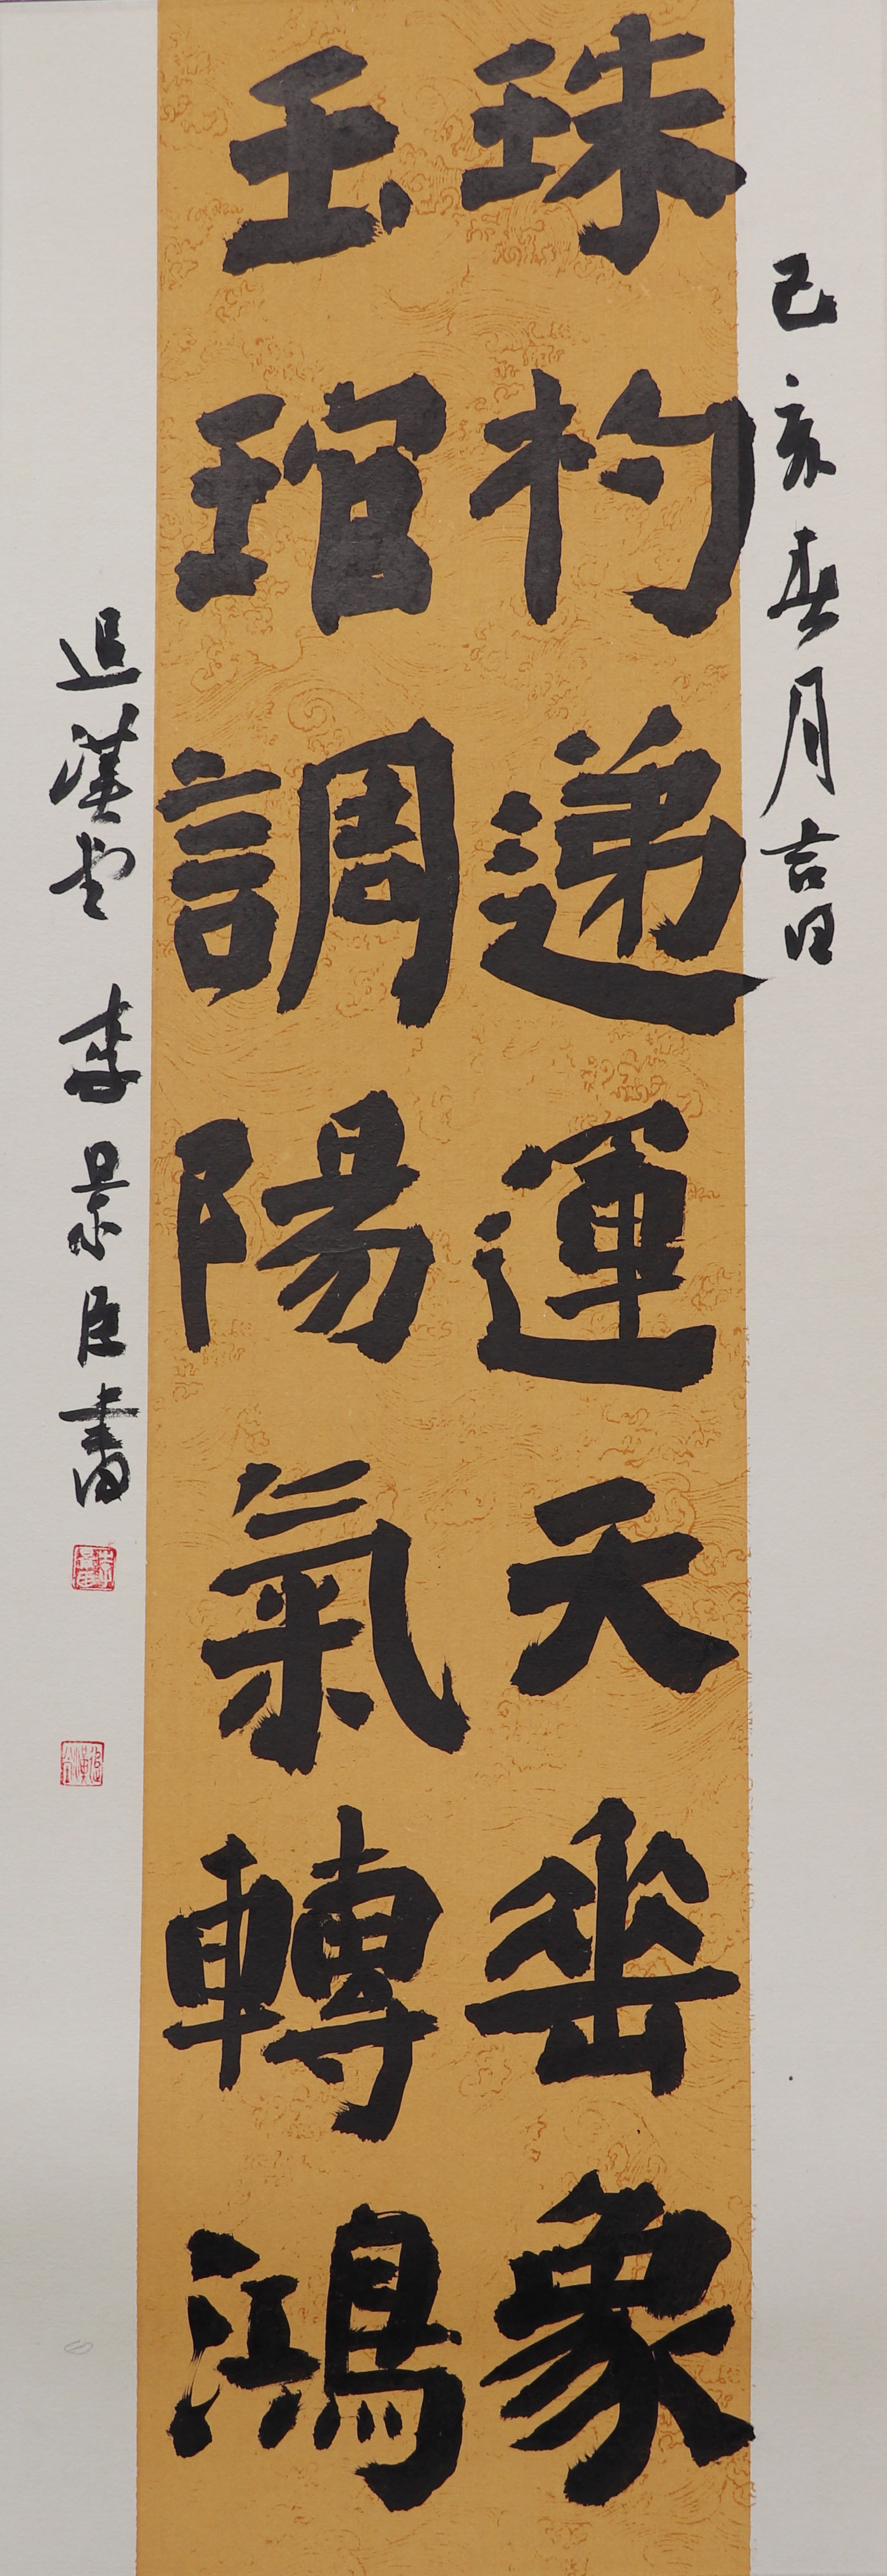 己亥春月吉日
珠杓递運天垂象
玉琯調陽氣轉鴻
追漢堂 李景臣書